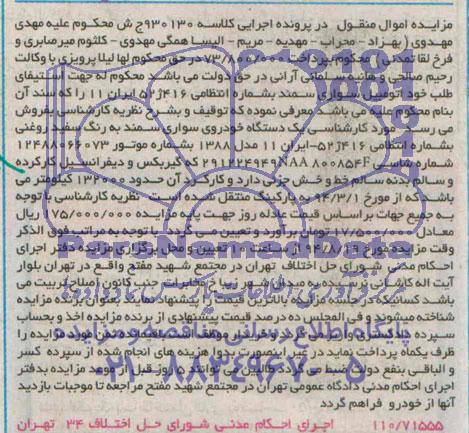 مزایده اموال منقول در پرونده اجرایی کلاسه ۹۳۰۱۳۰ج ش محکوم علیه مهدی
مهدوی (بهزاد - محراب - مهدیه - مریم - الیسا همگی مهدوی - کلثوم میرصابری و
فرخ لقا تمدنی) محکوم بپرداخت ۷۳/۸۰۰/۰۰۰ در حق محکوم لها لیلا پرویزی با وکالت
رحیم صالحی و هانیه سلمانی آرانی در حق دولت می باشد محکوم له جهت استیفای
طلب خود اتومبیل سواری سمند بشماره انتظامی ۴۱۶ق۵۲ ایران ۱۱ را که سند آن
بنام محکوم علیه می باشد معرفی نموده که توقیف و بشرح نظریه کارشناسی بفروش
می رسد. مورد کارشناسی یک دستگاه خودروی سواری سمند به رنگ سفید روغنی
شماره انتظامی ۴۱۶ق۵۲-ایران ۱۱ مدل ۱۳۸۸ بشماره موتور ۱۲۴۸۸۰۶۶۰۷۳
شماره شاسی NAA ۸۰۰۸۵۴F ۲۹۱۲۲۴۹۴۹ که گیربکس و دیفرانسیل کارکرده
و سالم بدنه سالم خط و خش جزئی دارد و کارکرد آن حدود ۱۳۲۰۰۰ کیلومتر می
باشد که از مورخ ۹۴/۳/۱ به پارکینگ منتقل شده است. نظریه کارشناسی با توجه
به جمیع جهات بر اساس قیمت عادله روز جهت پایه مزایده ۱۷۵/۰۰۰/۰۰۰ ریال
معادل ۱۷/۵۰۰/۰۰۰ تومان برآورد و تعیین می گردد. با توجه به مراتب فوق الذکر
وقت مزایده مورخ ۹۴/۸/۱۹ ساعت ۱۰ تعیین و محل برگزاری مزایده دفتر اجرای
احکام مدنی شورای حل اختلاف تهران در مجتمع شهید مفتح واقع در تهران بلوار
آیت اله کاشانی نرسیده به میدان شهر زیبا خ مخابرات جنب کانون اصلاح تربیت می
باشد کسانیکه در جلسه مزایده بالاترین قیمت را پیشنهاد نمایند بعنوان برنده مزایده
شناخته میشوند و فی المجلس ده درصد قیمت پیشنهادی از برنده مزایده اخذ و بحساب
سپرده دادگستری واریز می گردد و خریدار موظف است باقیمت ثمن مورد مزایده را
ظرف یکماه پرداخت نماید در غیر اینصورت هزینه های انجام شده از سپرده کسر
و الباقی بنفع دولت ضبط می گردد طالبین می توانند روز قبل از موعد مزایده بدفتر
اجرای احکام مدنی دادگاه عمومی تهران در مجتمع شهید مفتح مراجعه تا موجبات بازدید
آنها از خودرو فراهم گردد
۱۱۰/۷۱۵۵۵ اجرای احکام مدنی شورای حل اختلاف ۳۴ تهران
ParsNamadData
پایگاه اطلاع رسانی مناقصه و مزایده
۰۲۱-۸۸۳۴۹۶۷۰-۵